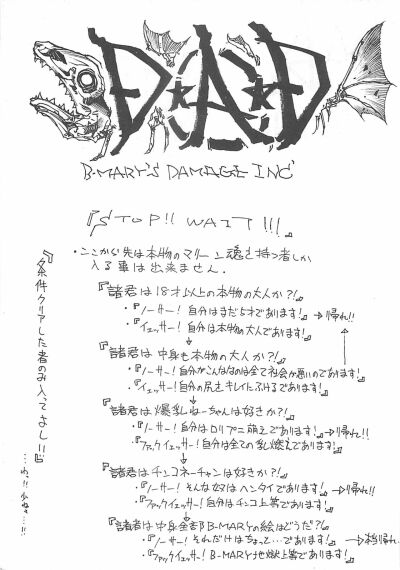 D★A★D
B-MARY'S DAMAGE INC
『STOP!! WAIT!!!』
・ここから先は本物のマリーン魂を持つ者しか
入る事は出来ません.
『諸君は18才以上の本物の大人か?!』
・『ノーサー! 自分はまだ5才であります!』→帰れ!!
・『イエッサー! 自分は本物の大人であります!』
『諸君は中身も本物の大人か?!』
・『ノーサー! 自分がこんななのは全て社会が悪いのであります!』
・『イエッサー! 自分の尻もキレイにふけるであります!』
『諸君は爆乳ねーちゃんは好きか?!』
・『ノーサー! 自分はロリプニ萌えであります!』→帰れ!!
・『ファックイエッサー! 自分は全ての乳燃えであります!』
『諸君はチンコネーチャンは好きか?!』
・『ノーサー! そんな奴はヘンタイであります!』→帰れ!!
・『ファックイエッサー! 自分はチンコ上等であります!』
『諸君は中身全部B-MARYの絵はどうだ?』
・『ノーサー! それだけはちょっと…であります!』→本当帰れ
・『ファックイエッサー! B-MARY地獄上等であります!』
『条件クリアした者のみ入ってよし!!』